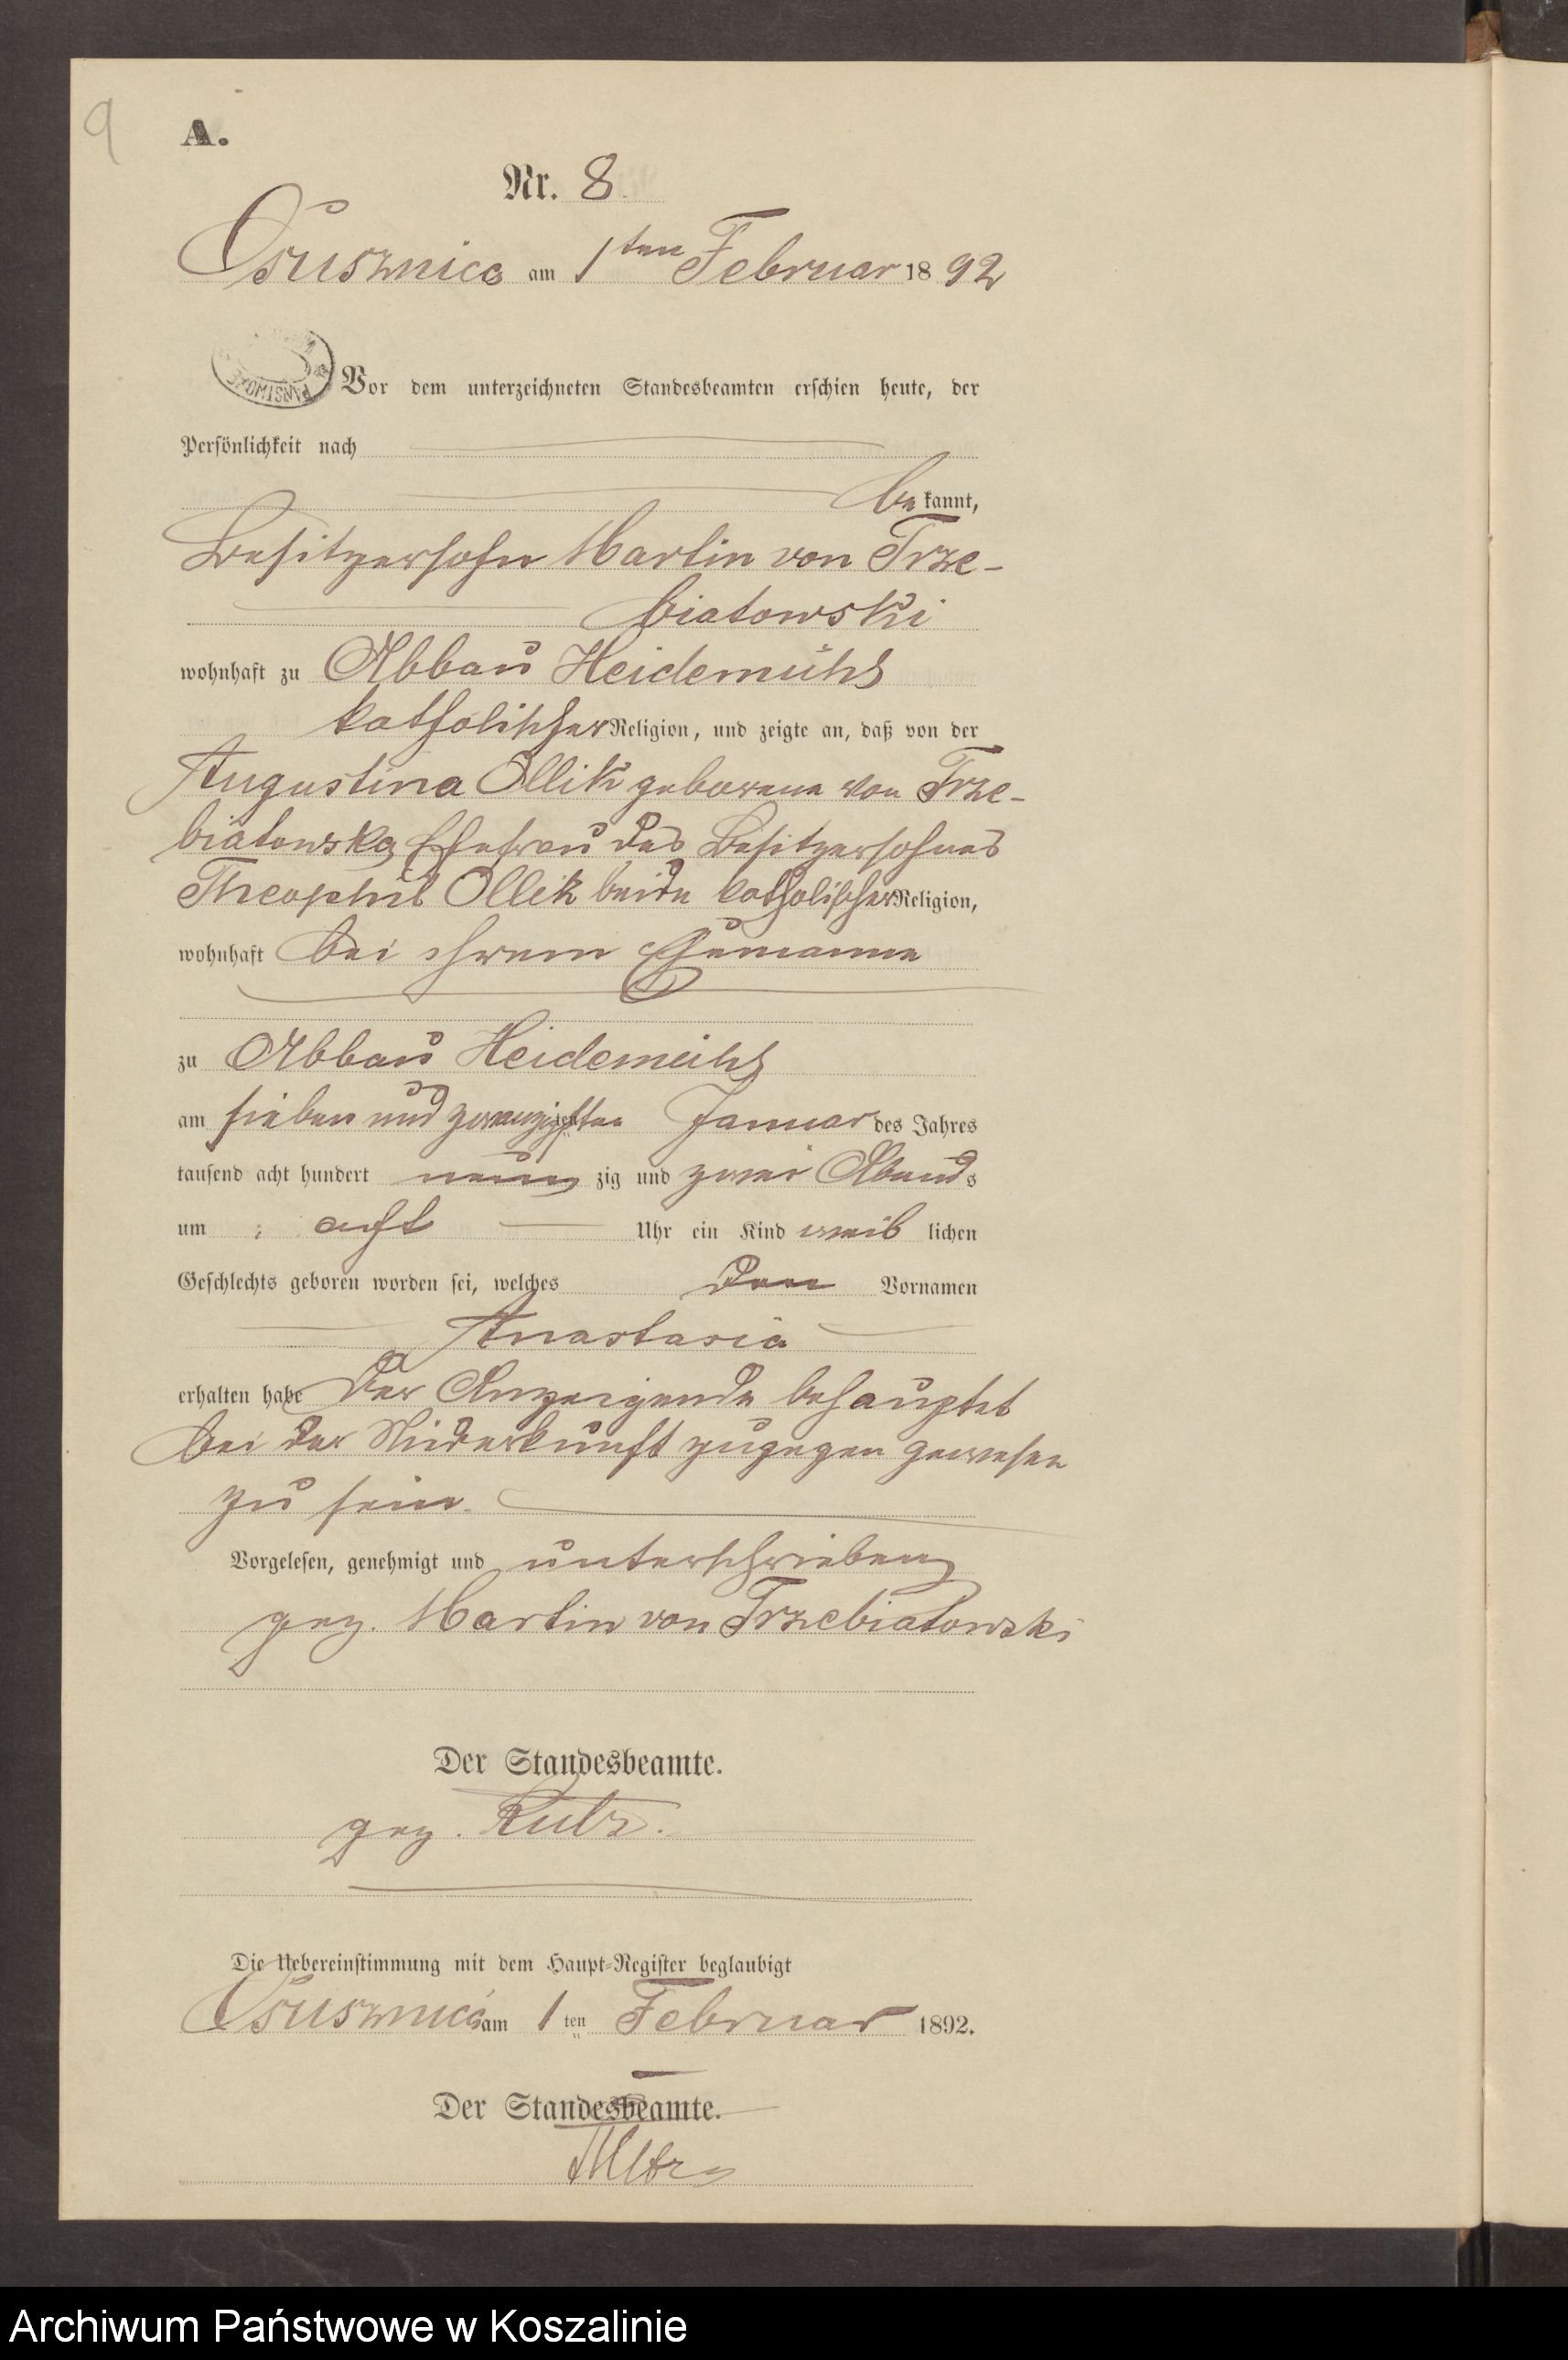 9
A.
Nr. 8.
Osusznica am 1ten Februar 1892
Vor dem unterzeichneten Standesbeamten erschien heute, der
Persönlichkeit nach
bekannt,
Besitzersohn Martin von Trze-
biatowski
wohnhaft zu Abbau Heidemühl
katholischer Religion, und zeigte an, daß von der
Augustina Ollik geborene von Trze-
biatowska, Ehefrau des Besitzersohnes
Theophil Ollik beide katholischer Religion,
wohnhaft bei ihrem Ehemanne
zu Abbau Heidemühl
am sieben und zwanzigsten Januar des Jahres
tausend acht hundert neunzig und zwei Abends
um acht Uhr ein Kind weiblichen
Geschlechts geboren worden sei, welches den Vornamen
Anastasia
erhalten habe Der Anzeigende behauptet
bei der Niederkunft zugegen gewesen
zu sein.
Vorgelesen, genehmigt und unterschrieben
gez. Martin von Trzebiatowski
Der Standesbeamte.
gez.
Die Uebereinstimmung mit dem Haupt-Register beglaubigt
Osusznica am 1ten Februar 1892.
Der Standesbeamte.
Archiwum Państwowe w Koszalinie